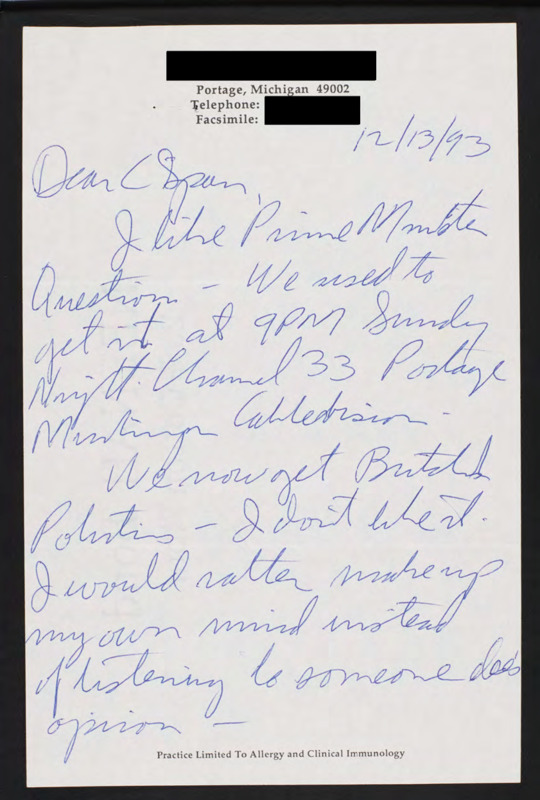 Portage, Michigan 49002
Telephone:
Facsimile:
12/13/93
Dear C Span,
I like Prime Minister
Questions - We used to
get it at 9PM Sunday
Night. Channel 33 Portage
Michigan Cablevision -
We now get British
Politics - I don't like it.
I would rather make up
my own mind instead
of listening to someone elses
opinion -
Practice Limited To Allergy and Clinical Immunology